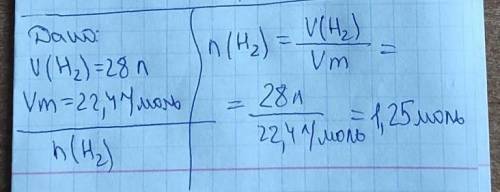 Дано:
V(H₂)=28л
Vm=22,4 л/моль
n(H₂)
n(H₂) = V(H₂)/Vm =
= 28л/22,4 л/моль = 1,25 моль